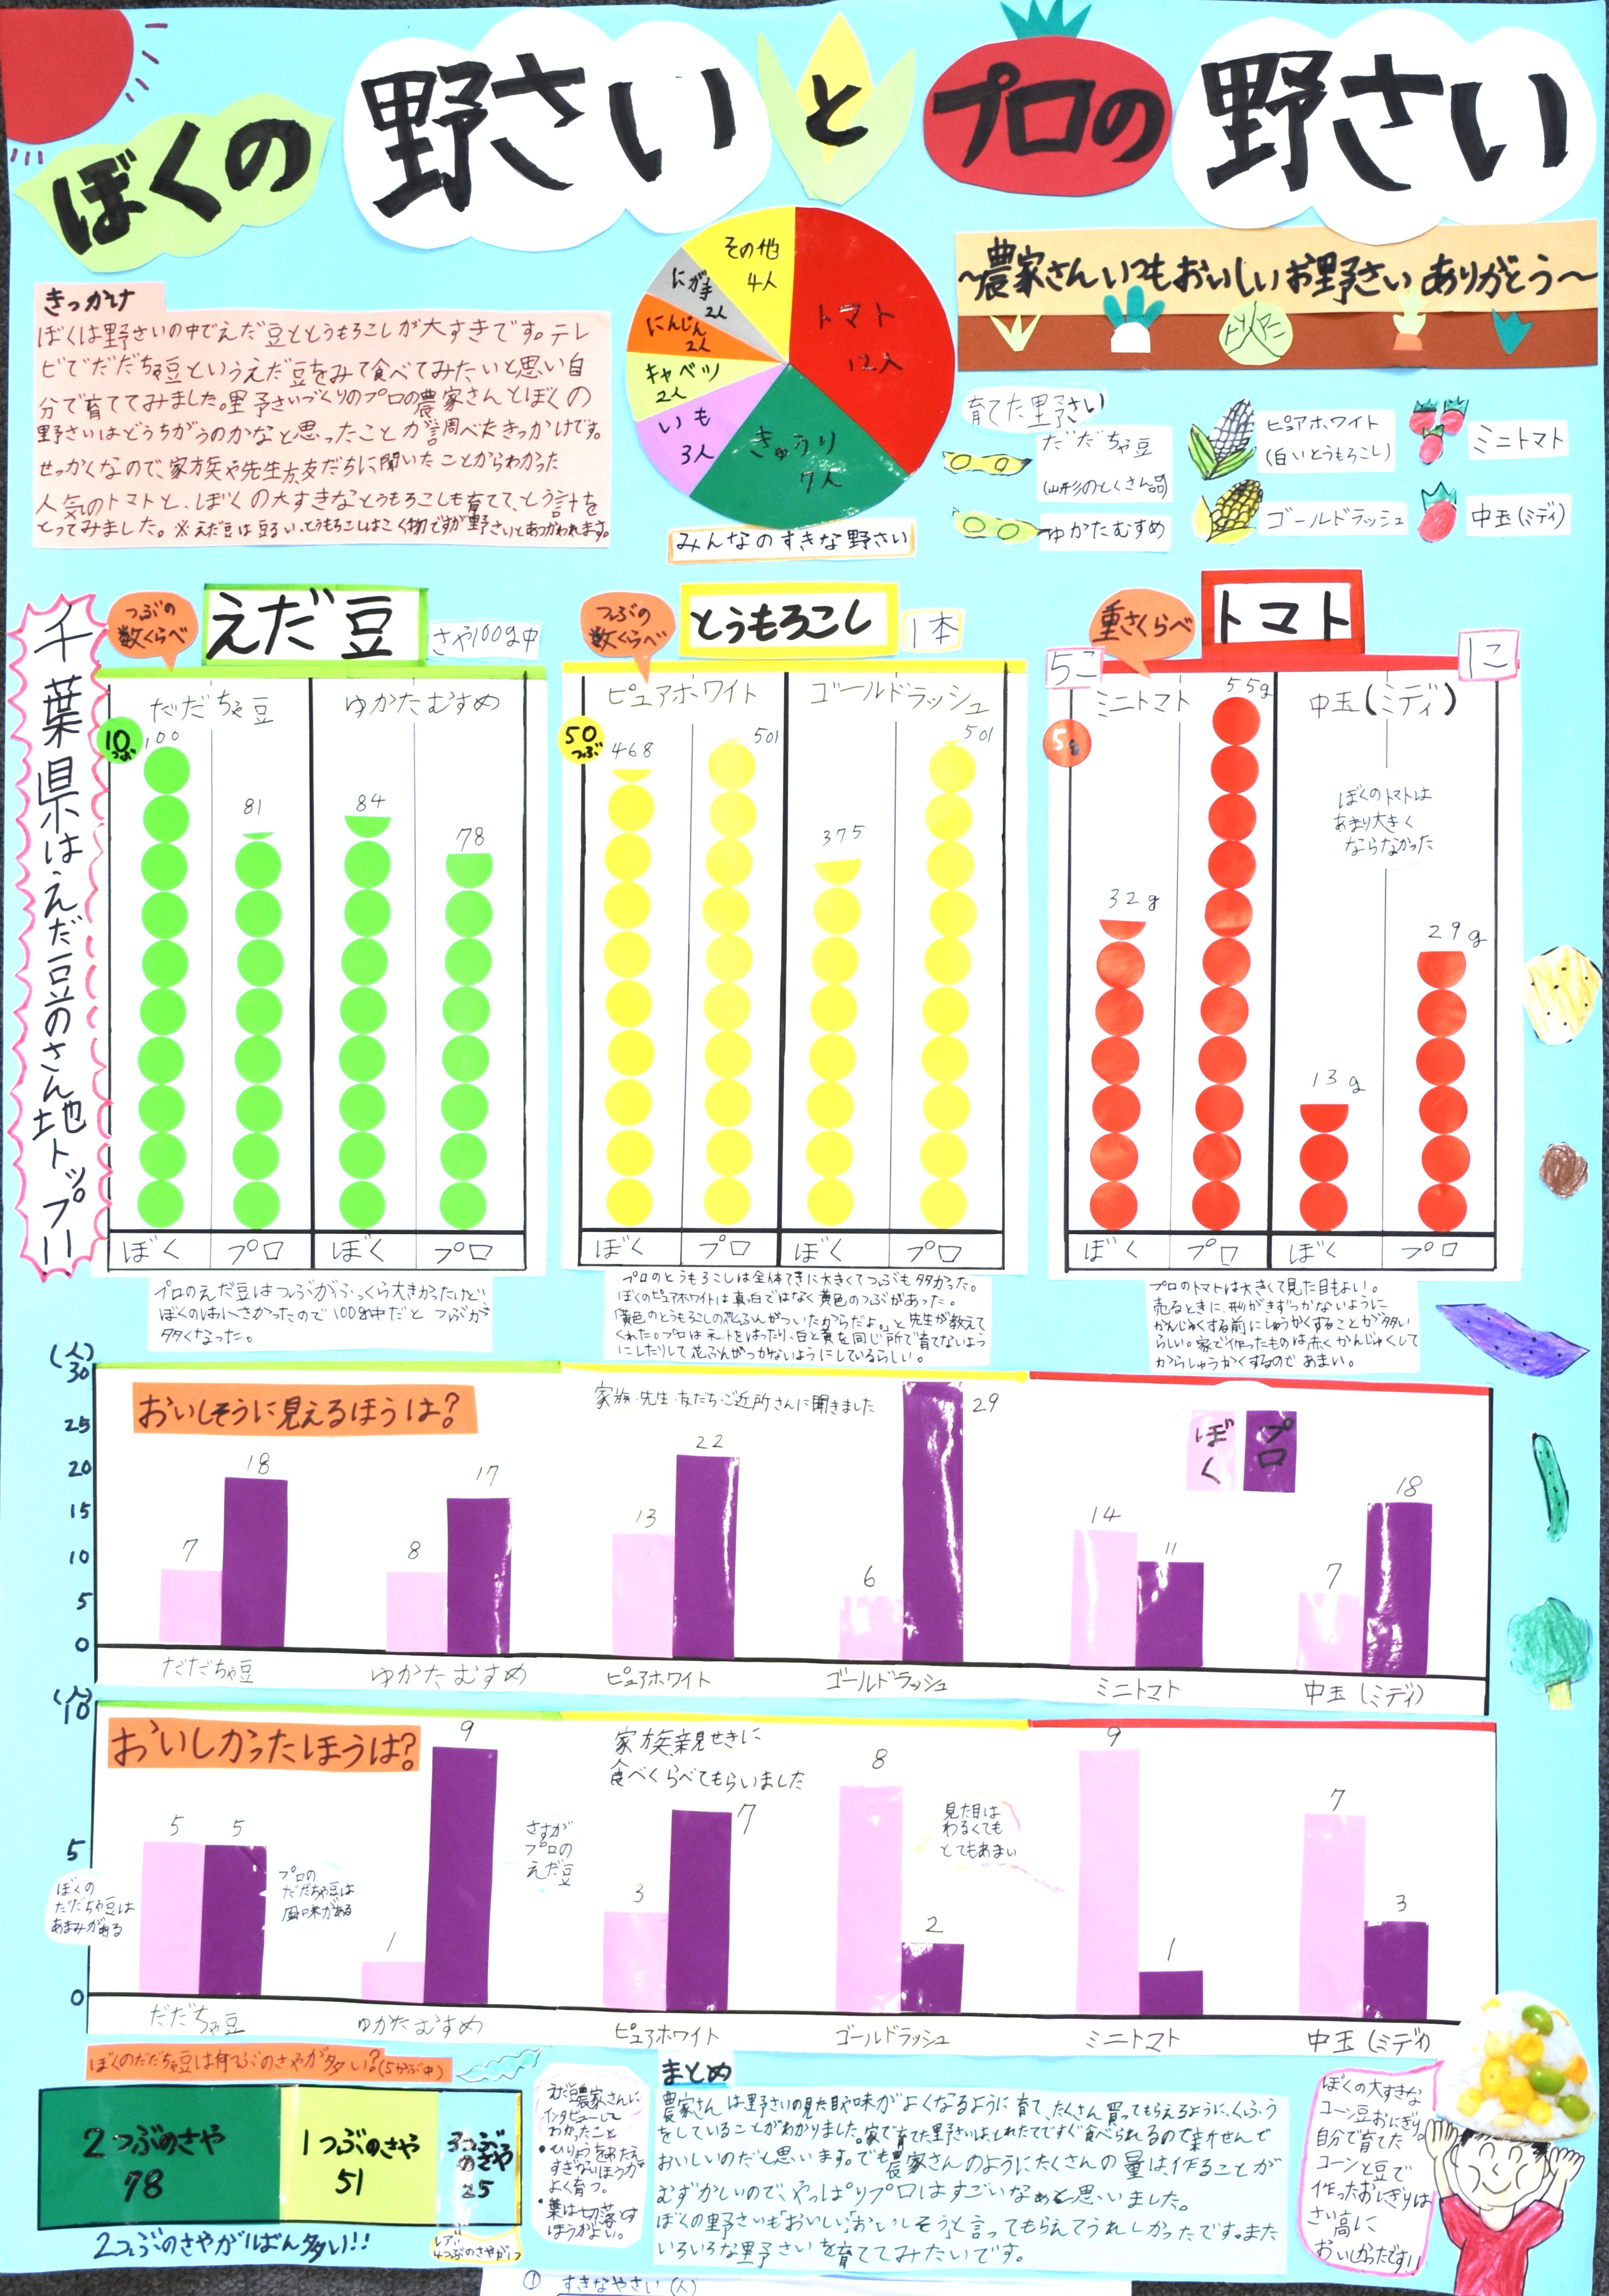 ぼくの 野さい と プロの 野さい
～農家さんいつもおいしいお野さい ありがとう～
きっかけ
ぼくは野さいの中でえだ豆ととうもろこしが大すきです。テレ
ビでだだちゃ豆というえだ豆をみて食べてみたいと思い自
分で育ててみました。野さいづくりのプロの農家さんとぼくの
野さいはどうちがうのかなと思ったことが調べたきっかけです。
せっかくなので、家族や先生、友だちに聞いたことからわかった
人気のトマトと、ぼくの大すきなとうもろこしも育てて、とう計を
とってみました。※えだ豆は豆るい、とうもろこしはこく物ですが野さいとあつかわれます。
トマト
12人
きゅうり
7人
いも
3人
キャベツ
2人
にんじん
2人
にが手
2人
その他
4人
みんなのすきな野さい
育てた野さい
だだちゃ豆
(山形のとくさん品)
ゆかたむすめ
ピュアホワイト
(白いとうもろこし)
ゴールドラッシュ
ミニトマト
中玉(ミディ)
千葉県はえだ豆のさん地トップ!!
つぶの
数くらべ
えだ豆
さや100g中
だだちゃ豆
ゆかたむすめ
10つぶ
100
81
84
78
ぼく
プロ
ぼく
プロ
プロのえだ豆はつぶがふっくら大きかったけど
ぼくのは小さかったので100g中だと つぶが
多くなった。
つぶの
数くらべ
とうもろこし
1本
ピュアホワイト
ゴールドラッシュ
50
つぶ
468
501
375
501
ぼく
プロ
ぼく
プロ
プロのとうもろこしは全体てきに大きくてつぶも多かった。
ぼくのピュアホワイトは真っ白ではなく黄色のつぶがあった。
「黄色のとうもろこしの花ふんがついたからだよ。」と先生が教えて
くれた。プロはネットをはったり、白と黄を同じ所で育てないよう
にしたりして花ふんがつかないようにしているらしい。
重さくらべ
トマト
5こ
1こ
ミニトマト
中玉(ミディ)
5g
32g
55g
13g
29g
ぼくのトマトは
あまり大きく
ならなかった
ぼく
プロ
ぼく
プロ
プロのトマトは大きくて見た目もよい。
売るときに、形がきずつかないように
かんじゅくする前にしゅうかくすることが多い
らしい。家で作ったものは赤くかんじゅくして
からしゅうかくするので あまい。
(人)
30
25
20
15
10
5
0
おいしそうに見えるほうは?
家族・先生・友だち・ご近所さんに聞きました
ぼく
プロ
7
18
8
17
13
22
6
29
14
11
7
18
だだちゃ豆
ゆかたむすめ
ピュアホワイト
ゴールドラッシュ
ミニトマト
中玉(ミディ)
(人)
10
5
0
おいしかったほうは?
家族、親せきに
食べくらべてもらいました
5
5
1
9
3
7
8
2
9
1
7
3
ぼくの
だだちゃ豆は
あまみがある
プロの
だだちゃ豆は
風味がある
さすが
プロの
えだ豆
見た目は
わるくても
とてもあまい
だだちゃ豆
ゆかたむすめ
ピュアホワイト
ゴールドラッシュ
ミニトマト
中玉(ミディ)
ぼくのだだちゃ豆は何つぶのさやが多い?(5かぶ中)
2つぶのさや
78
1つぶのさや
51
3つぶ
のさや
25
2つぶのさやが1ばん多い!!
レア!
4つぶのさやが1つ
えだ豆農家さんに
インタビューして
わかったこと
・ひりょうをあたえ
すぎないほうが
よく育つ。
・葉は切落とす
ほうがよい。
まとめ
農家さんは野さいの見た目や味がよくなるように育て、たくさん買ってもらえるように、くふう
をしていることがわかりました。家で育てた野さいは、とれたてですぐ食べられるので新せんで
おいしいのだと思います。でも農家さんのようにたくさんの量は、作ることが
むずかしいので、やっぱりプロはすごいなぁと思いました。
ぼくの野さいも「おいしい」「おいしそう」と言ってもらえてうれしかったです。また
いろいろな野さいを育ててみたいです。
ぼくの大すきな
コーン豆おにぎり。
自分で育てた
コーンと豆で
作ったおにぎりは
さい高に
おいしかったです!!
① すきなやさい(人)